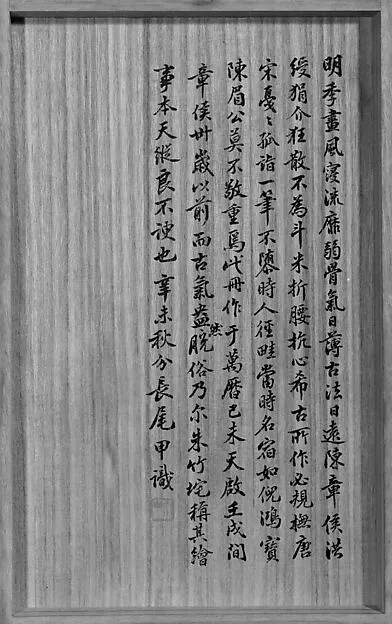 明季畫風寖流靡弱骨氣日薄古法日遠陳章侯洪
綬狷介狂散不為斗米折腰抗心希古所作必規橅唐
宋戞〻孤詣一筆不墮時人徑畦當時名宿如倪鴻寶
陳眉公莫不敬重焉此冊作于萬曆己未天啟壬戌間
章侯卅歲以前而古氣盎然脫俗乃尔朱竹垞稱其繪
事本天縱良不諛也辛未秋分長尾甲識